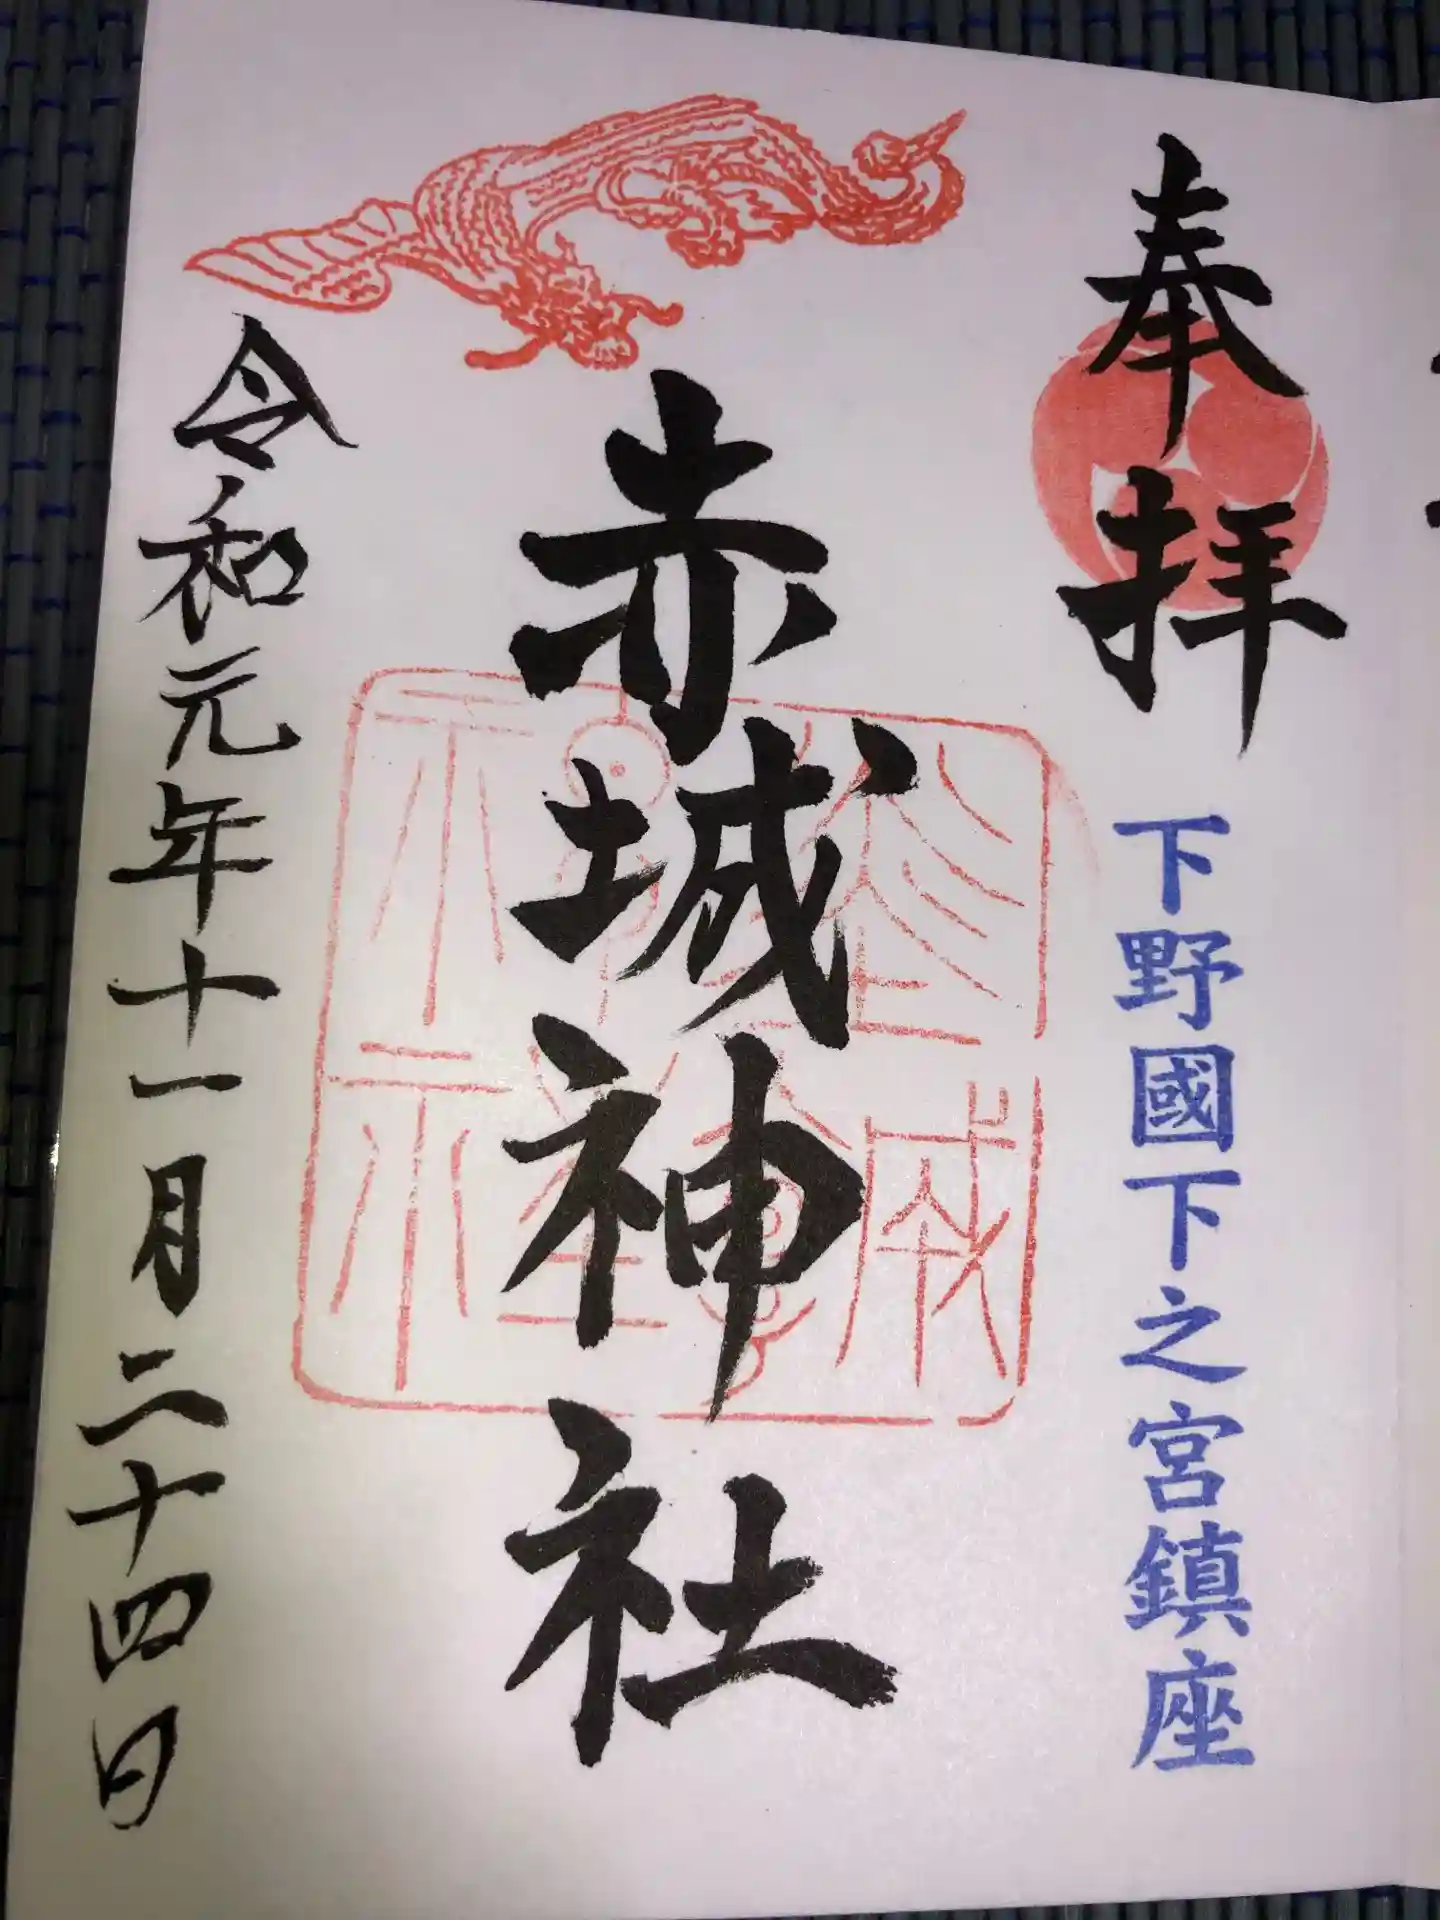 奉拝
下野國下之宮鎮座
赤城神社
令和元年十一月二十四日